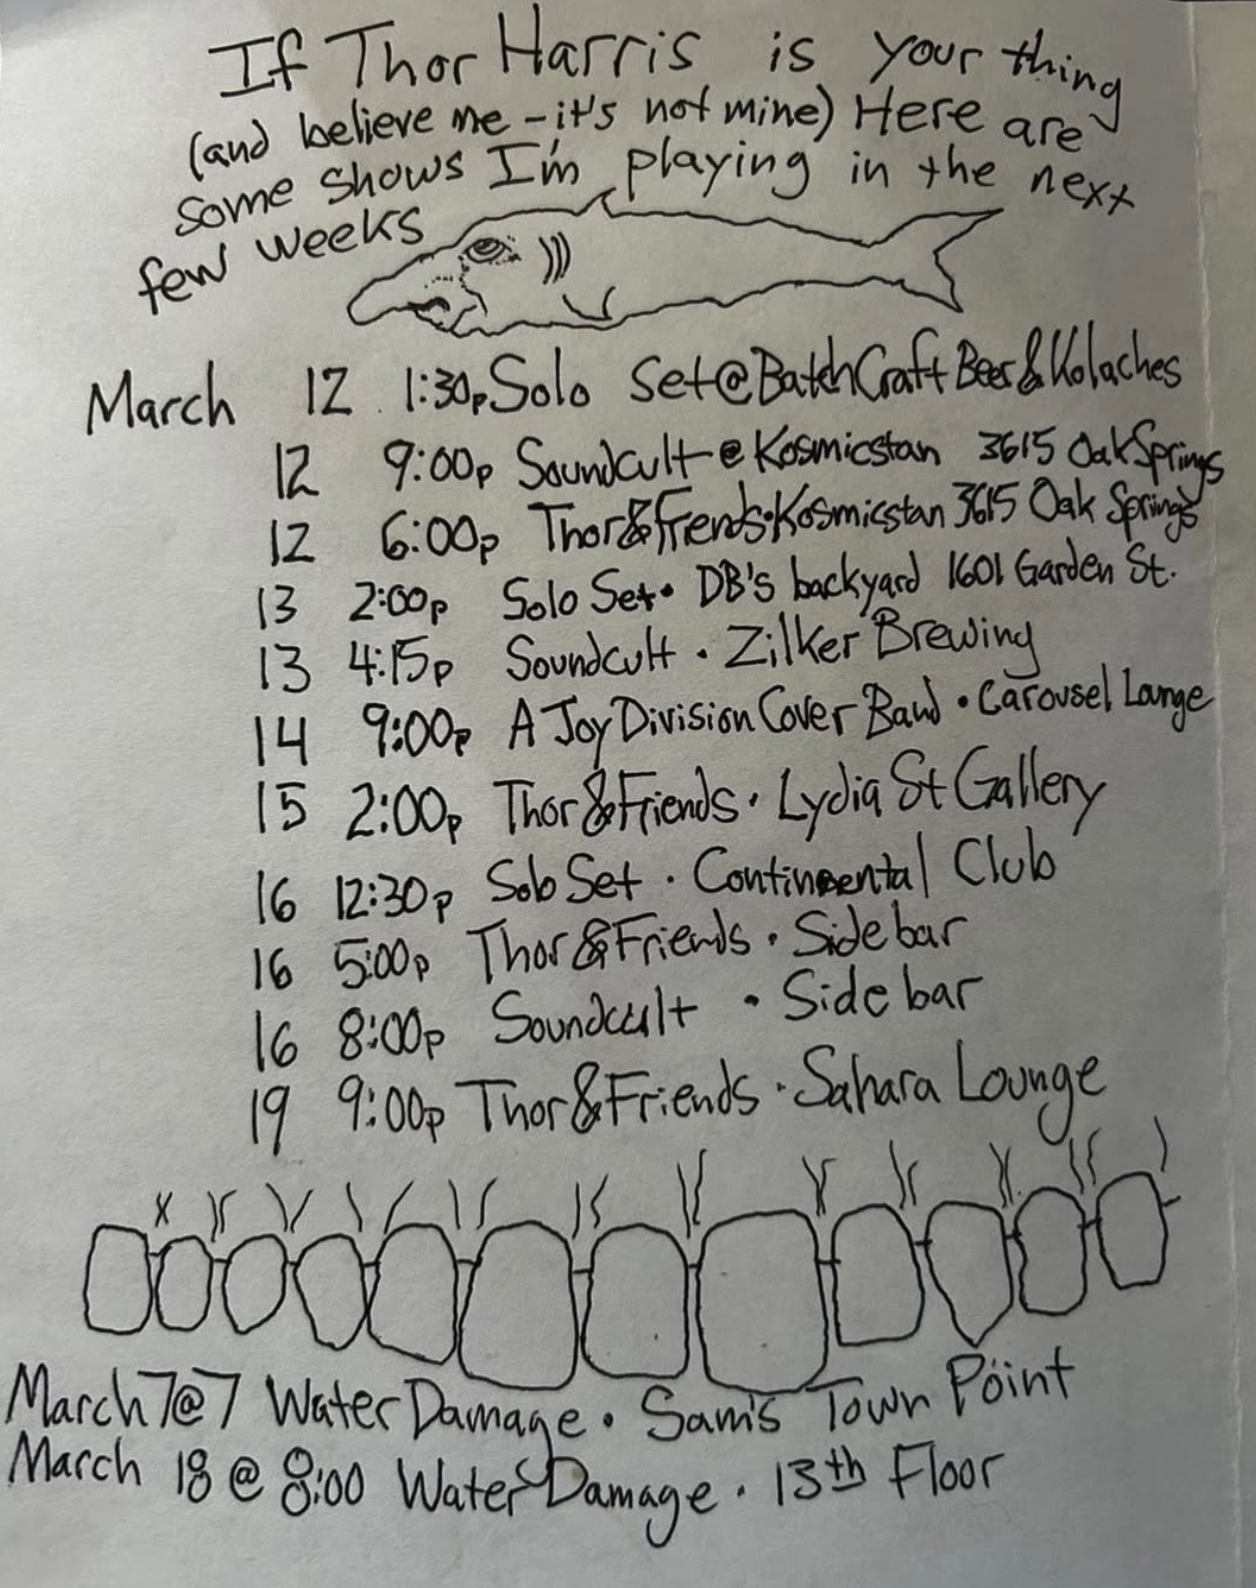 If Thor Harris is your thing
(and believe me - it's not mine) Here are
some shows I'm playing in the next
few weeks
March 12 1:30p Solo Set @ Batch Craft Beer & Kolaches
12 9:00p Soundcult @ Kosmicstan 3615 Oak Springs
12 6:00p Thor & Friends • Kosmicstan 3615 Oak Springs
13 2:00p Solo Set • DB's backyard 1601 Garden St.
13 4:15p Soundcult • Zilker Brewing
14 9:00p A Joy Division Cover Band • Carousel Lounge
15 2:00p Thor & Friends • Lydia St Gallery
16 12:30p Solo Set • Continental Club
16 5:00p Thor & Friends • Side bar
16 8:00p Soundcult • Side bar
19 9:00p Thor & Friends • Sahara Lounge
March 7 @ 7 Water Damage • Sam's Town Point
March 18 @ 8:00 Water Damage • 13th Floor